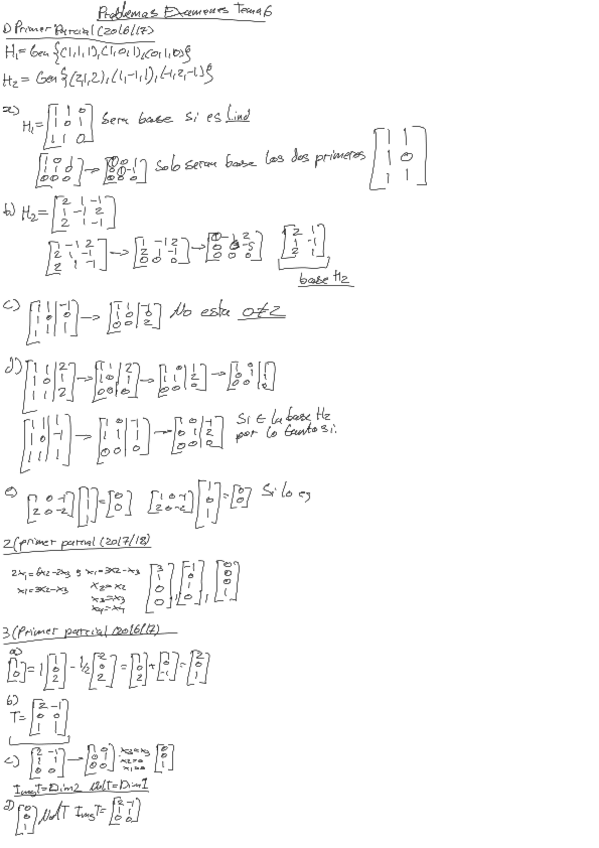 Problemas Examenes Tema 6
1) Primer Parcial (2016/17)
H1 = Gen {(1,1,1), (1,0,1), (0,1,0)}
H2 = Gen {(2,1,2), (1,-1,1), (-1,2,-1)}
a) H1 = [1 1 0; 1 0 1; 1 1 0] Sera base si es Lind
[1 0 1; 1 1 0; 0 0 0] → Solo seran base los dos primeros [1 1; 1 0; 1 1]
b) H2 = [2 1 -1; 1 -1 2; 2 1 -1]
[1 -1 2; 2 1 -1; 2 1 -1] → [1 -1 2; 2 1 -1; 0 0 0] → [1 -1 2; 0 3 -5; 0 0 0] [2 1; 1 -1; 2 1]
base H2
c) [1 1 | -1; 1 0 | 0; 1 1 | 1] → [1 1 | -1; 1 0 | 0; 0 0 | 2] No esta 0≠2
d) [1 1 | 2; 1 0 | 1; 1 1 | 2] → [1 1 | 2; 1 0 | 1; 0 0 | 0] → [1 0 | 1; 1 1 | 2; 0 0 | 0] → [1 0 | 1; 0 1 | 1; 0 0 | 0]
[1 1 | 1; 1 0 | -1; 1 1 | 1] → [1 0 | -1; 1 1 | 1; 0 0 | 0] → [1 0 | -1; 0 1 | 2; 0 0 | 0] Si ∈ la base H2
por lo tanto si.
e) [1 0 -1; 2 0 -2] [1; 1; 1] = [0; 0] [1 0 -1; 2 0 -2] [1; 0; 1] = [0; 0] Si lo es
2(primer parcial (2017/18)
2x1=6x2-2x3 x1=3x2-x3
x1=3x2-x3 x2=x2
x3=x3
x4=x4
[3; 1; 0; 0], [-1; 0; 1; 0], [0; 0; 0; 1]
3(Primer parcial (2016/17)
a)
[1; 0] = 1 [1; 0; 2] - 1/2 [-2; 0; 2] = [1; 0; 2] + [1; 0; -1] = [2; 0; 1]
b)
T = [2 -1; 0 0; 1 1]
c) [2 -1; 1 1; 0 0] → [1 0; 0 1; 0 0] x3=x3 x2=0 x1=0 [0; 0; 1]
Img T = Dim 2 Nul T = Dim 1
d) [0; 0; 1] Nul T Img T = [2 -1; 1 1; 0 0]